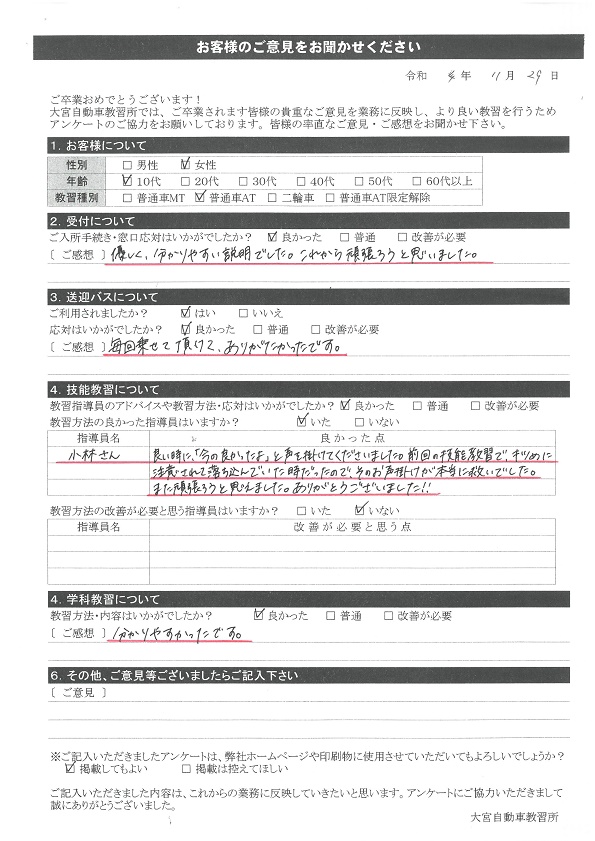 お客様のご意見をお聞かせください
令和 4 年 11 月 29 日
ご卒業おめでとうございます！
大宮自動車教習所では、ご卒業されます皆様の貴重なご意見を業務に反映し、より良い教習を行うため
アンケートのご協力をお願いしております。皆様の率直なご意見・ご感想をお聞かせ下さい。
1. お客様について
性別 □ 男性 ☑ 女性
年齢 ☑ 10代 □ 20代 □ 30代 □ 40代 □ 50代 □ 60代以上
教習種別 □ 普通車MT ☑ 普通車AT □ 二輪車 □ 普通車AT限定解除
2. 受付について
ご入所手続き・窓口応対はいかがでしたか？ ☑ 良かった □ 普通 □ 改善が必要
[ ご感想 ] 優しく、分かりやすい説明でした。これから頑張ろうと思いました。
3. 送迎バスについて
ご利用されましたか？ ☑ はい □ いいえ
応対はいかがでしたか？ ☑ 良かった □ 普通 □ 改善が必要
[ ご感想 ] 毎回乗せて頂けて、ありがたかったです。
4. 技能教習について
教習指導員のアドバイスや教習方法・応対はいかがでしたか？ ☑ 良かった □ 普通 □ 改善が必要
教習方法の良かった指導員はいますか？ ☑ いた □ いない
指導員名 良かった点
小林さん 良い時に、「今の良かったよ」と声を掛けてくださいました。前回の技能教習で、キツめに
注意されて落ち込んでいた時だったので、そのお声掛けが本当に救いでした。
また頑張ろうと思えました。ありがとうございました!!
教習方法の改善が必要と思う指導員はいますか？ □ いた ☑ いない
指導員名 改善が必要と思う点
4. 学科教習について
教習方法・内容はいかがでしたか？ ☑ 良かった □ 普通 □ 改善が必要
[ ご感想 ] 分かりやすかったです。
6. その他、ご意見等ございましたらご記入下さい
[ ご意見 ]
※ご記入いただきましたアンケートは、弊社ホームページや印刷物に使用させていただいてもよろしいでしょうか？
☑ 掲載してもよい □ 掲載は控えてほしい
ご記入いただきました内容は、これからの業務に反映していきたいと思います。アンケートにご協力いただきまして
誠にありがとうございました。
大宮自動車教習所